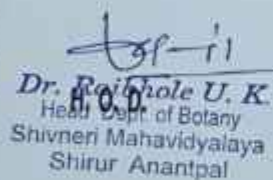 Dr. Raibhole U. K.
H. O. D.
Head Dept. of Botany
Shivneri Mahavidyalaya
Shirur Anantpal